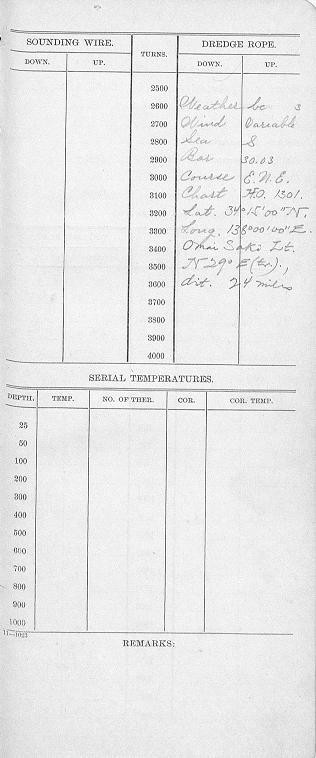 SOUNDING WIRE. TURNS. DREDGE ROPE.
DOWN. UP. DOWN. UP.
2500
2600 Weather bc 3
2700 Wind Variable
2800 Sea S
2900 Bar 30.03
3000 Course E.N.E.
3100 Chart H.O. 1301.
3200 Lat. 34°15'00"N.
3300 Long. 138°00'00"E.
3400 Omai Saki Lt.
3500 N 29° E (tr.).,
3600 dist. 24 miles
3700
3800
3900
4000
SERIAL TEMPERATURES.
DEPTH. TEMP. NO. OF THER. COR. COR. TEMP.
25
50
100
200
300
400
500
600
700
800
900
1000
11—1023
REMARKS: